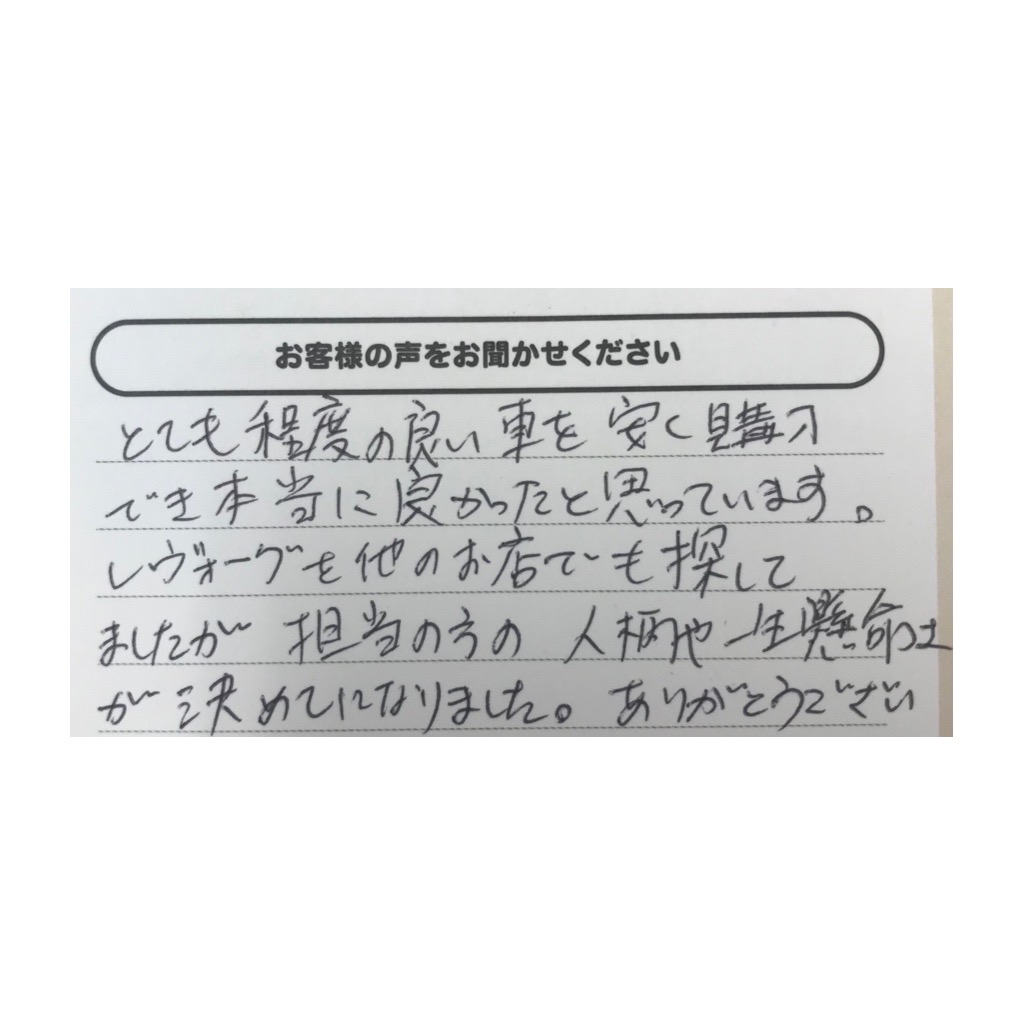 お客様の声をお聞かせください
とても程度の良い車を安く購入
でき本当に良かったと思っています。
レヴォーグを他のお店でも探して
ましたが 担当の方の 人柄や一生懸命さ
が決めてになりました。ありがとうござい